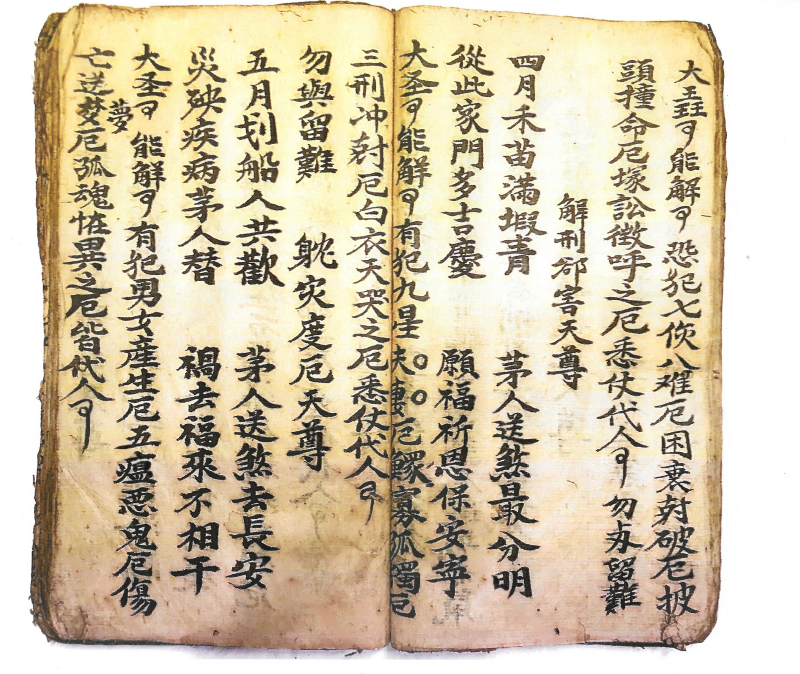 大聖々能解々恐犯七伤八难厄困衰尅破厄披
頭撞命厄塚訟徴呼之厄悉仗代人々勿为留難
解刑邵害天尊
四月禾苗满塅青 茅人送煞最分明
從此家門多吉慶 願福祈恩保安寧
大圣々能解々有犯九星○○夫妻厄鰥寡孤獨厄
三刑冲尅厄白衣天哭之厄悉仗代人々
勿與留難 躭灾度厄天尊
五月划船人共歡 茅人送煞去長安
災殃疾病茅人替 禍去福來不相干
大圣々能解々有犯男女產生厄五瘟惡鬼厄傷
亡送梦夢厄孤魂怪異之厄皆代人々